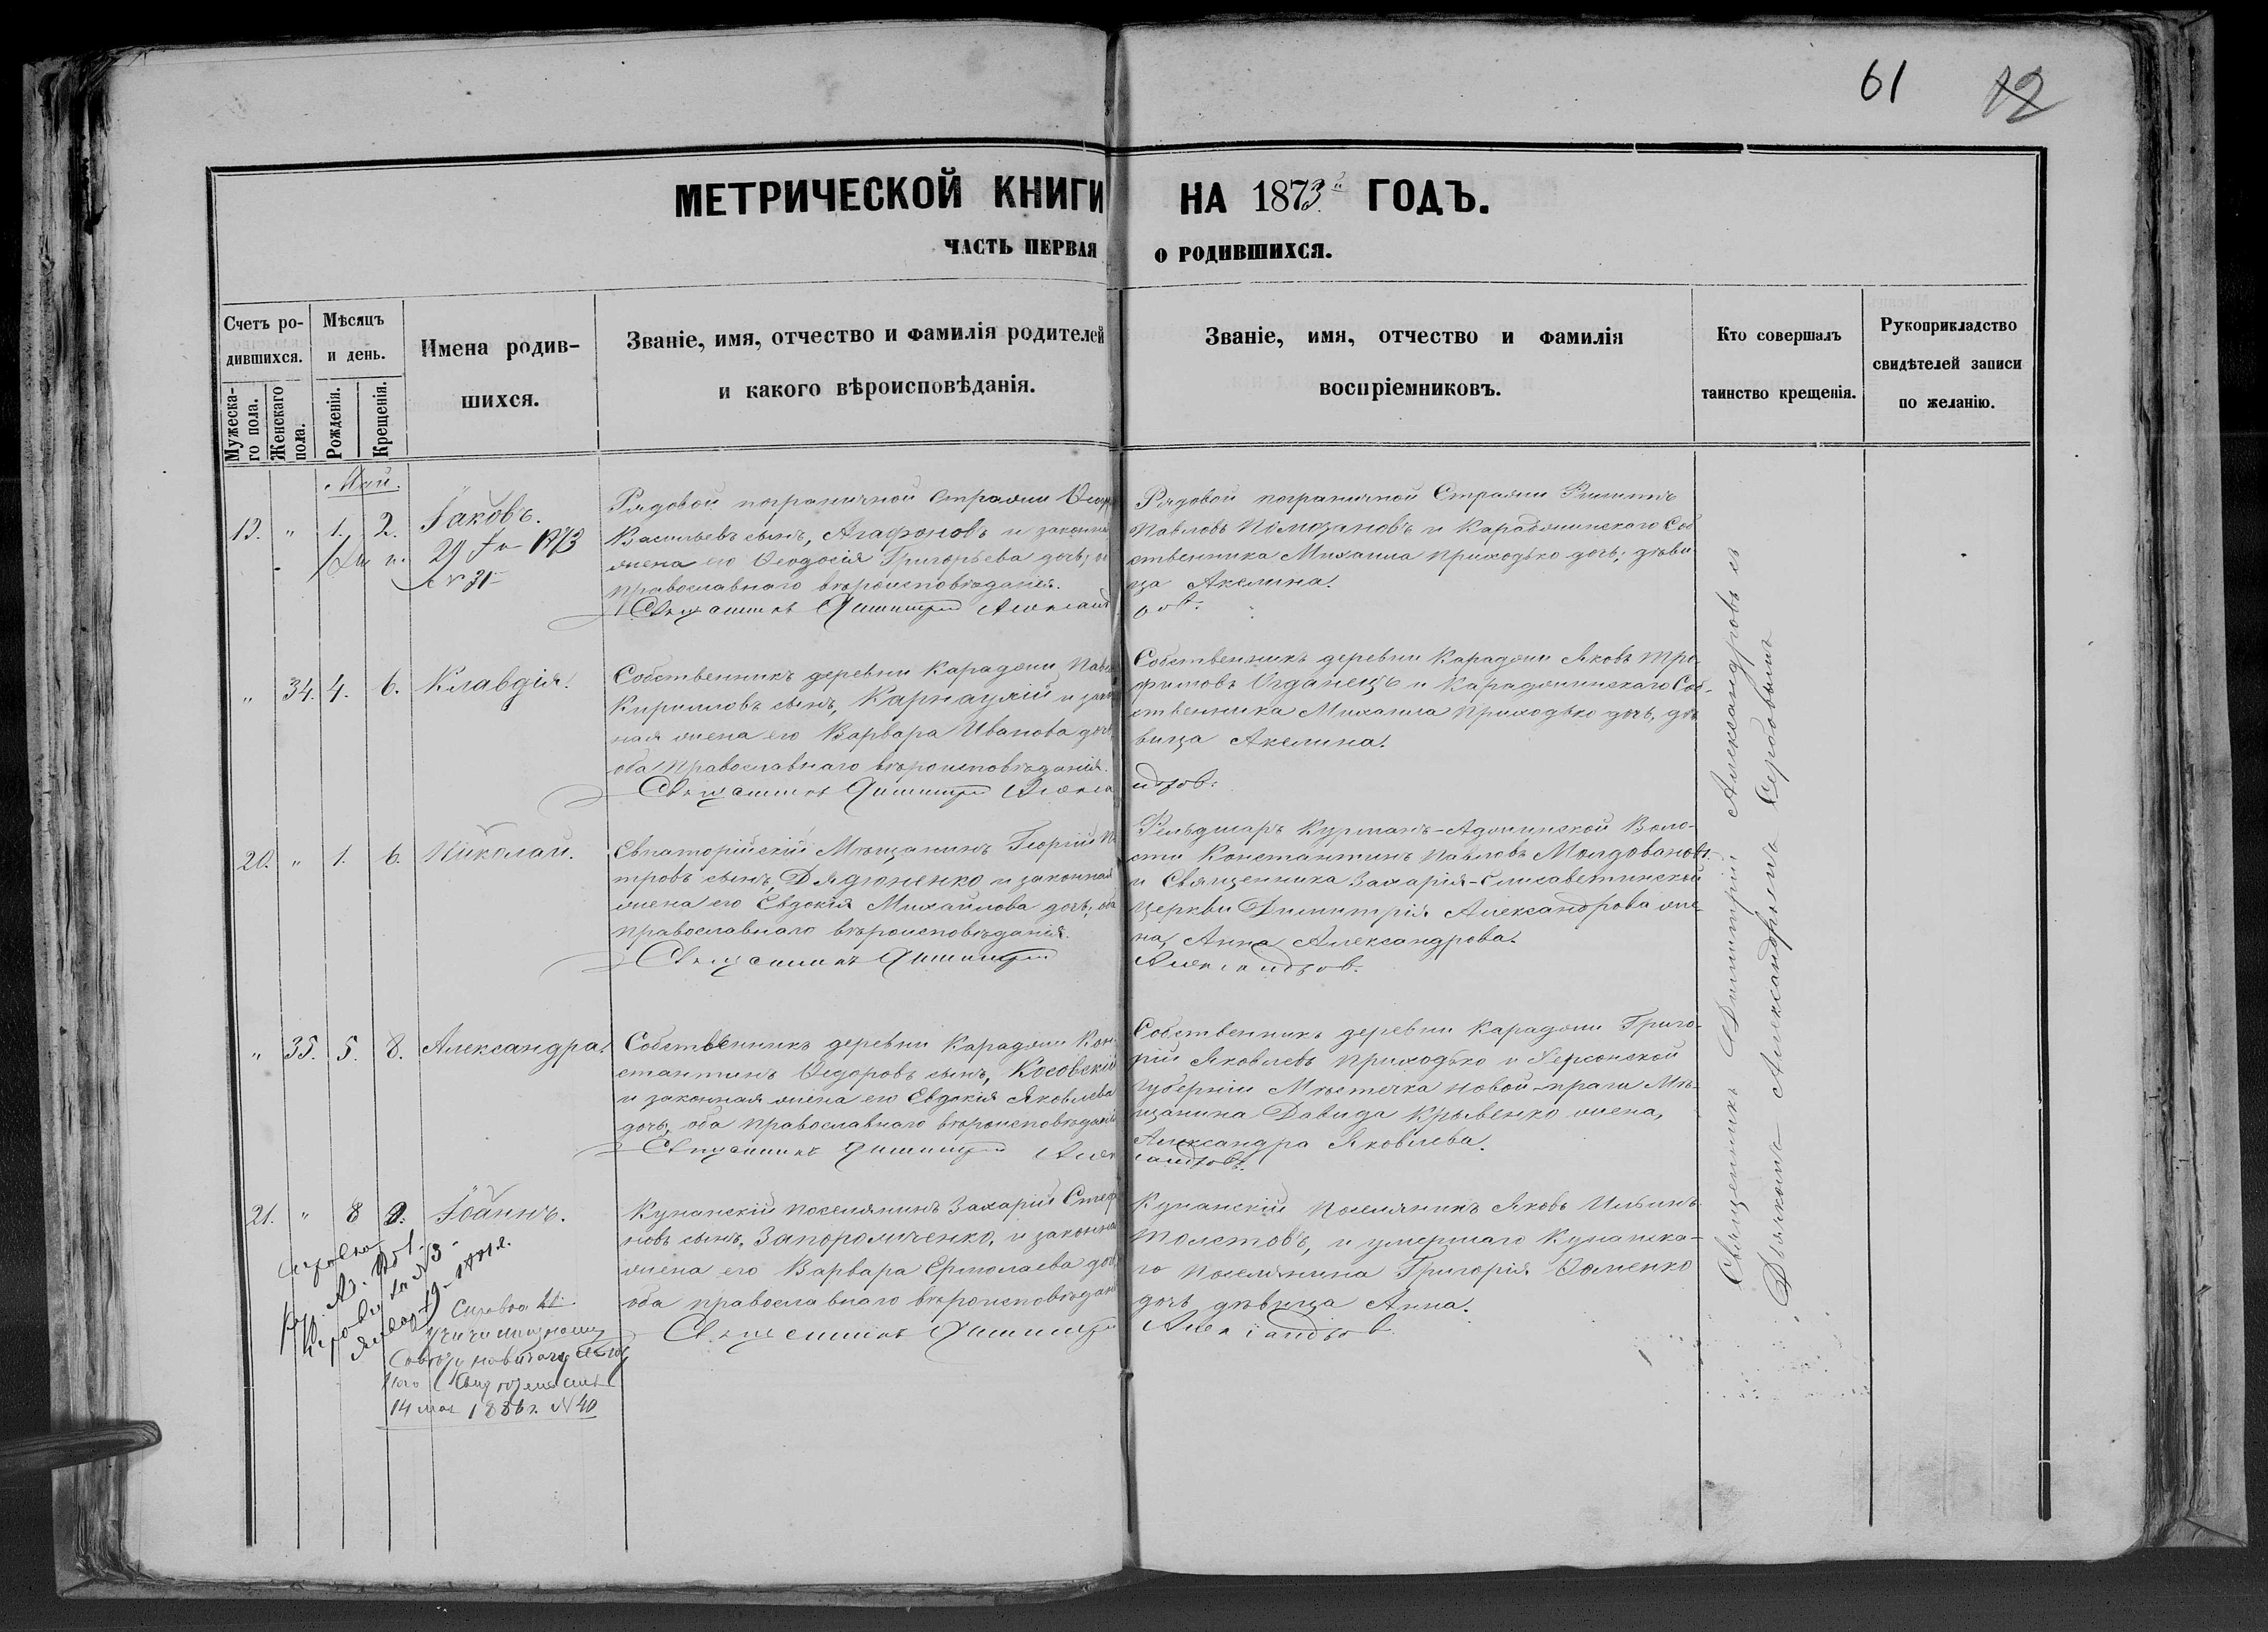 61 12
МЕТРИЧЕСКОЙ КНИГИ НА 1873й ГОДЪ.
ЧАСТЬ ПЕРВАЯ О РОДИВШИХСЯ.
Счетъ ро-
дившихся.
Мужеска-
го пола.
Женскаго
пола.
Мѣсяцъ
и день.
Рожденія.
Крещенія.
Имена родив-
шихся.
Званіе, имя, отчество и фамилія родителей
и какого вѣроисповѣданія.
Званіе, имя, отчество и фамилія
воспріемниковъ.
Кто совершалъ
таинство крещенія.
Рукоприкладство
свидѣтелей записи
по желанію.
Май.
19. " 1. 2. Іаковъ.
Рядовой пограничной Стражи
Васильевъ сынъ, Агафоновъ и законная
жена его Ѳеодосія Григорьева дочь,
православнаго вѣроисповѣданія.
Священникъ Димитрій Александ
Рядовой пограничной Стражи Филиппъ
Павловъ и Караджинскаго Соб
ственника Михаила Приходько дочь, дѣви
ца Акелина.
ровъ.
" 34. 4. 6. Клавдія.
Собственникъ деревни Караджи
Кирилловъ сынъ, Карнаухій и закон
ная жена его Варвара Иванова дочь,
оба православнаго вѣроисповѣданія.
Священникъ Димитрій Алекса
Собственникъ деревни Караджи Яковъ Тро-
фимовъ и Караджинскаго Соб-
ственника Михаила Приходько дочь, дѣ
вица Акелина.
ндровъ.
20. " 1. 6. Николай.
Евпаторійскій Мѣщанинъ Георгій Пе
тровъ сынъ, Дядюненко и законная
жена его Евдокія Михайлова дочь, оба
православнаго вѣроисповѣданія.
Священникъ Димитрій
Фельдшеръ Курманъ-Аджинской Воло-
сти Константинъ Павловъ Молдовановъ
и Священника Захарія-Елисаветинской
церкви Димитрія Александрова же-
на, Анна Александрова.
Александровъ.
" 35. 5. 8. Александра.
Собственникъ деревни Караджи Кон-
стантинъ Ѳедоровъ сынъ, Косовскій
и законная жена его Евдокія Яковлева
дочь, оба православнаго вѣроисповѣданія
Священникъ Димитрій Алек
Собственникъ деревни Караджи Григо-
рій Яковлевъ Приходько и Херсонской
губерніи Мѣстечка Новой-праги Мѣ-
щанина Давида Крывенко жена,
Александра Яковлева.
сандровъ.
21. " 8 9. Іоаннъ.
Кунанскій поселянинъ Захарій Стефа
новъ сынъ, Запорожченко, и законная
жена его Варвара Ермолаева дочь
оба православнаго вѣроисповѣдан
Священникъ Димитрій
Кунанскій поселянинъ Яковъ Ильинъ
Толстовъ, и умершаго Кунанска-
го поселянина Григорія Ѳоменко
дочь дѣвица Анна.
Александровъ
14 мая 1886 г. N 40
Священникъ Димитрій Александровъ съ
Дьякономъ Александромъ Сербовымъ